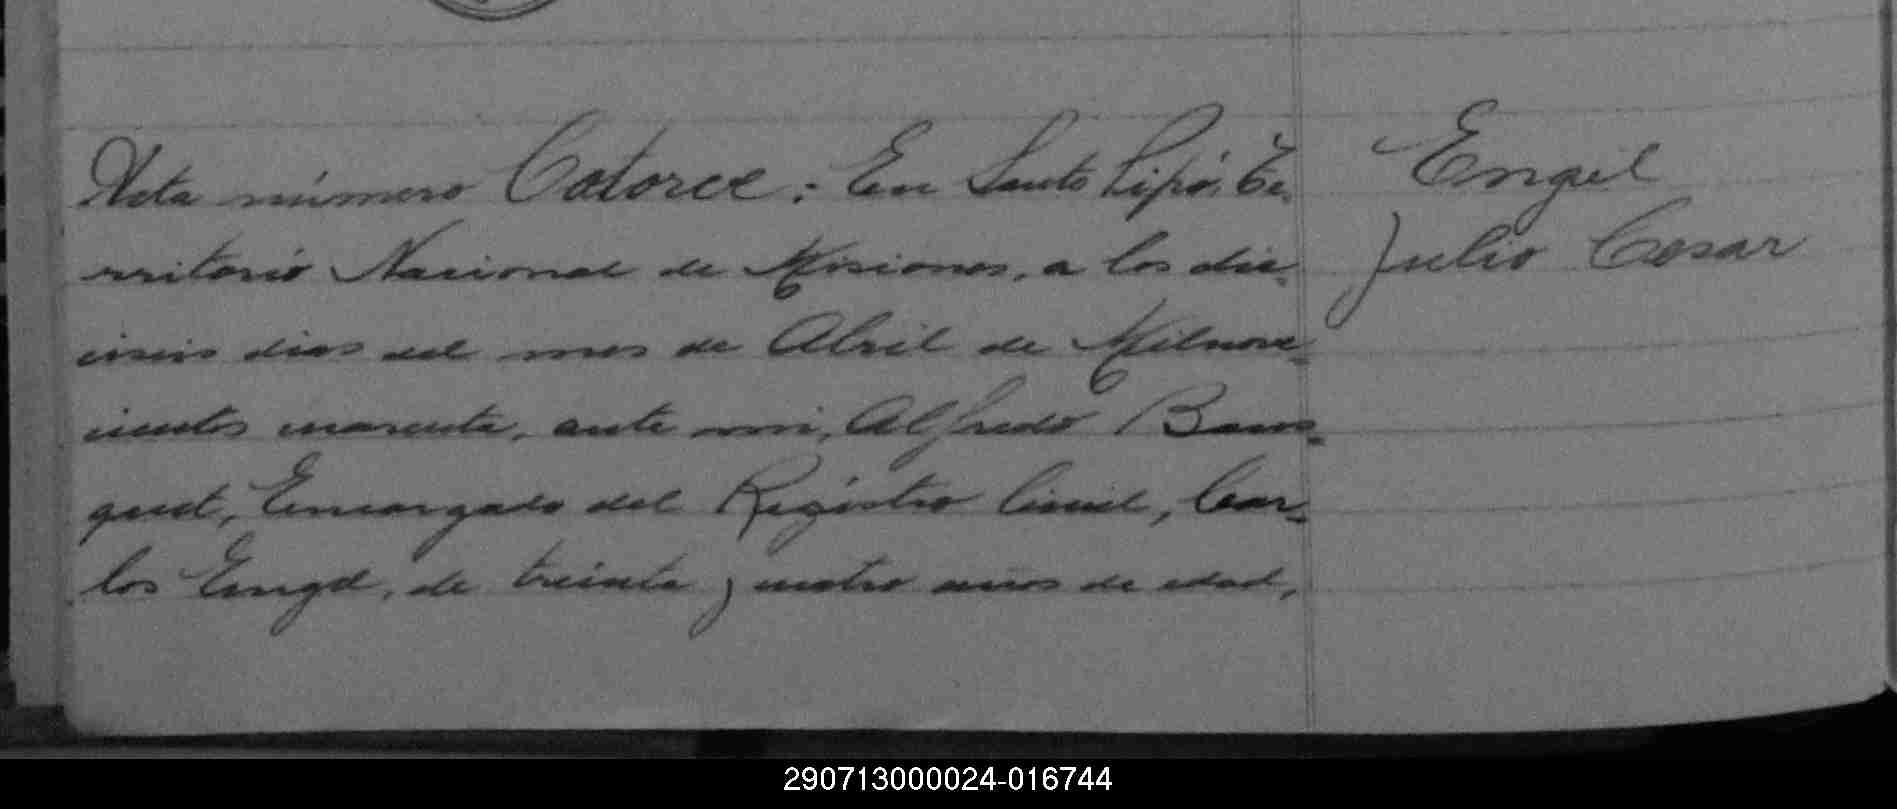 Acta número Catorce: En Santo Pipó, Te-
rritorio Nacional de Misiones, a los die-
ciseis dias del mes de Abril de Milnove-
cientos cuarenta, ante mi, Alfredo
Encargado del Registro Civil, Car-
los Engel, de treinta y cuatro años de edad,
Engel
Julio Cesar
290713000024-016744